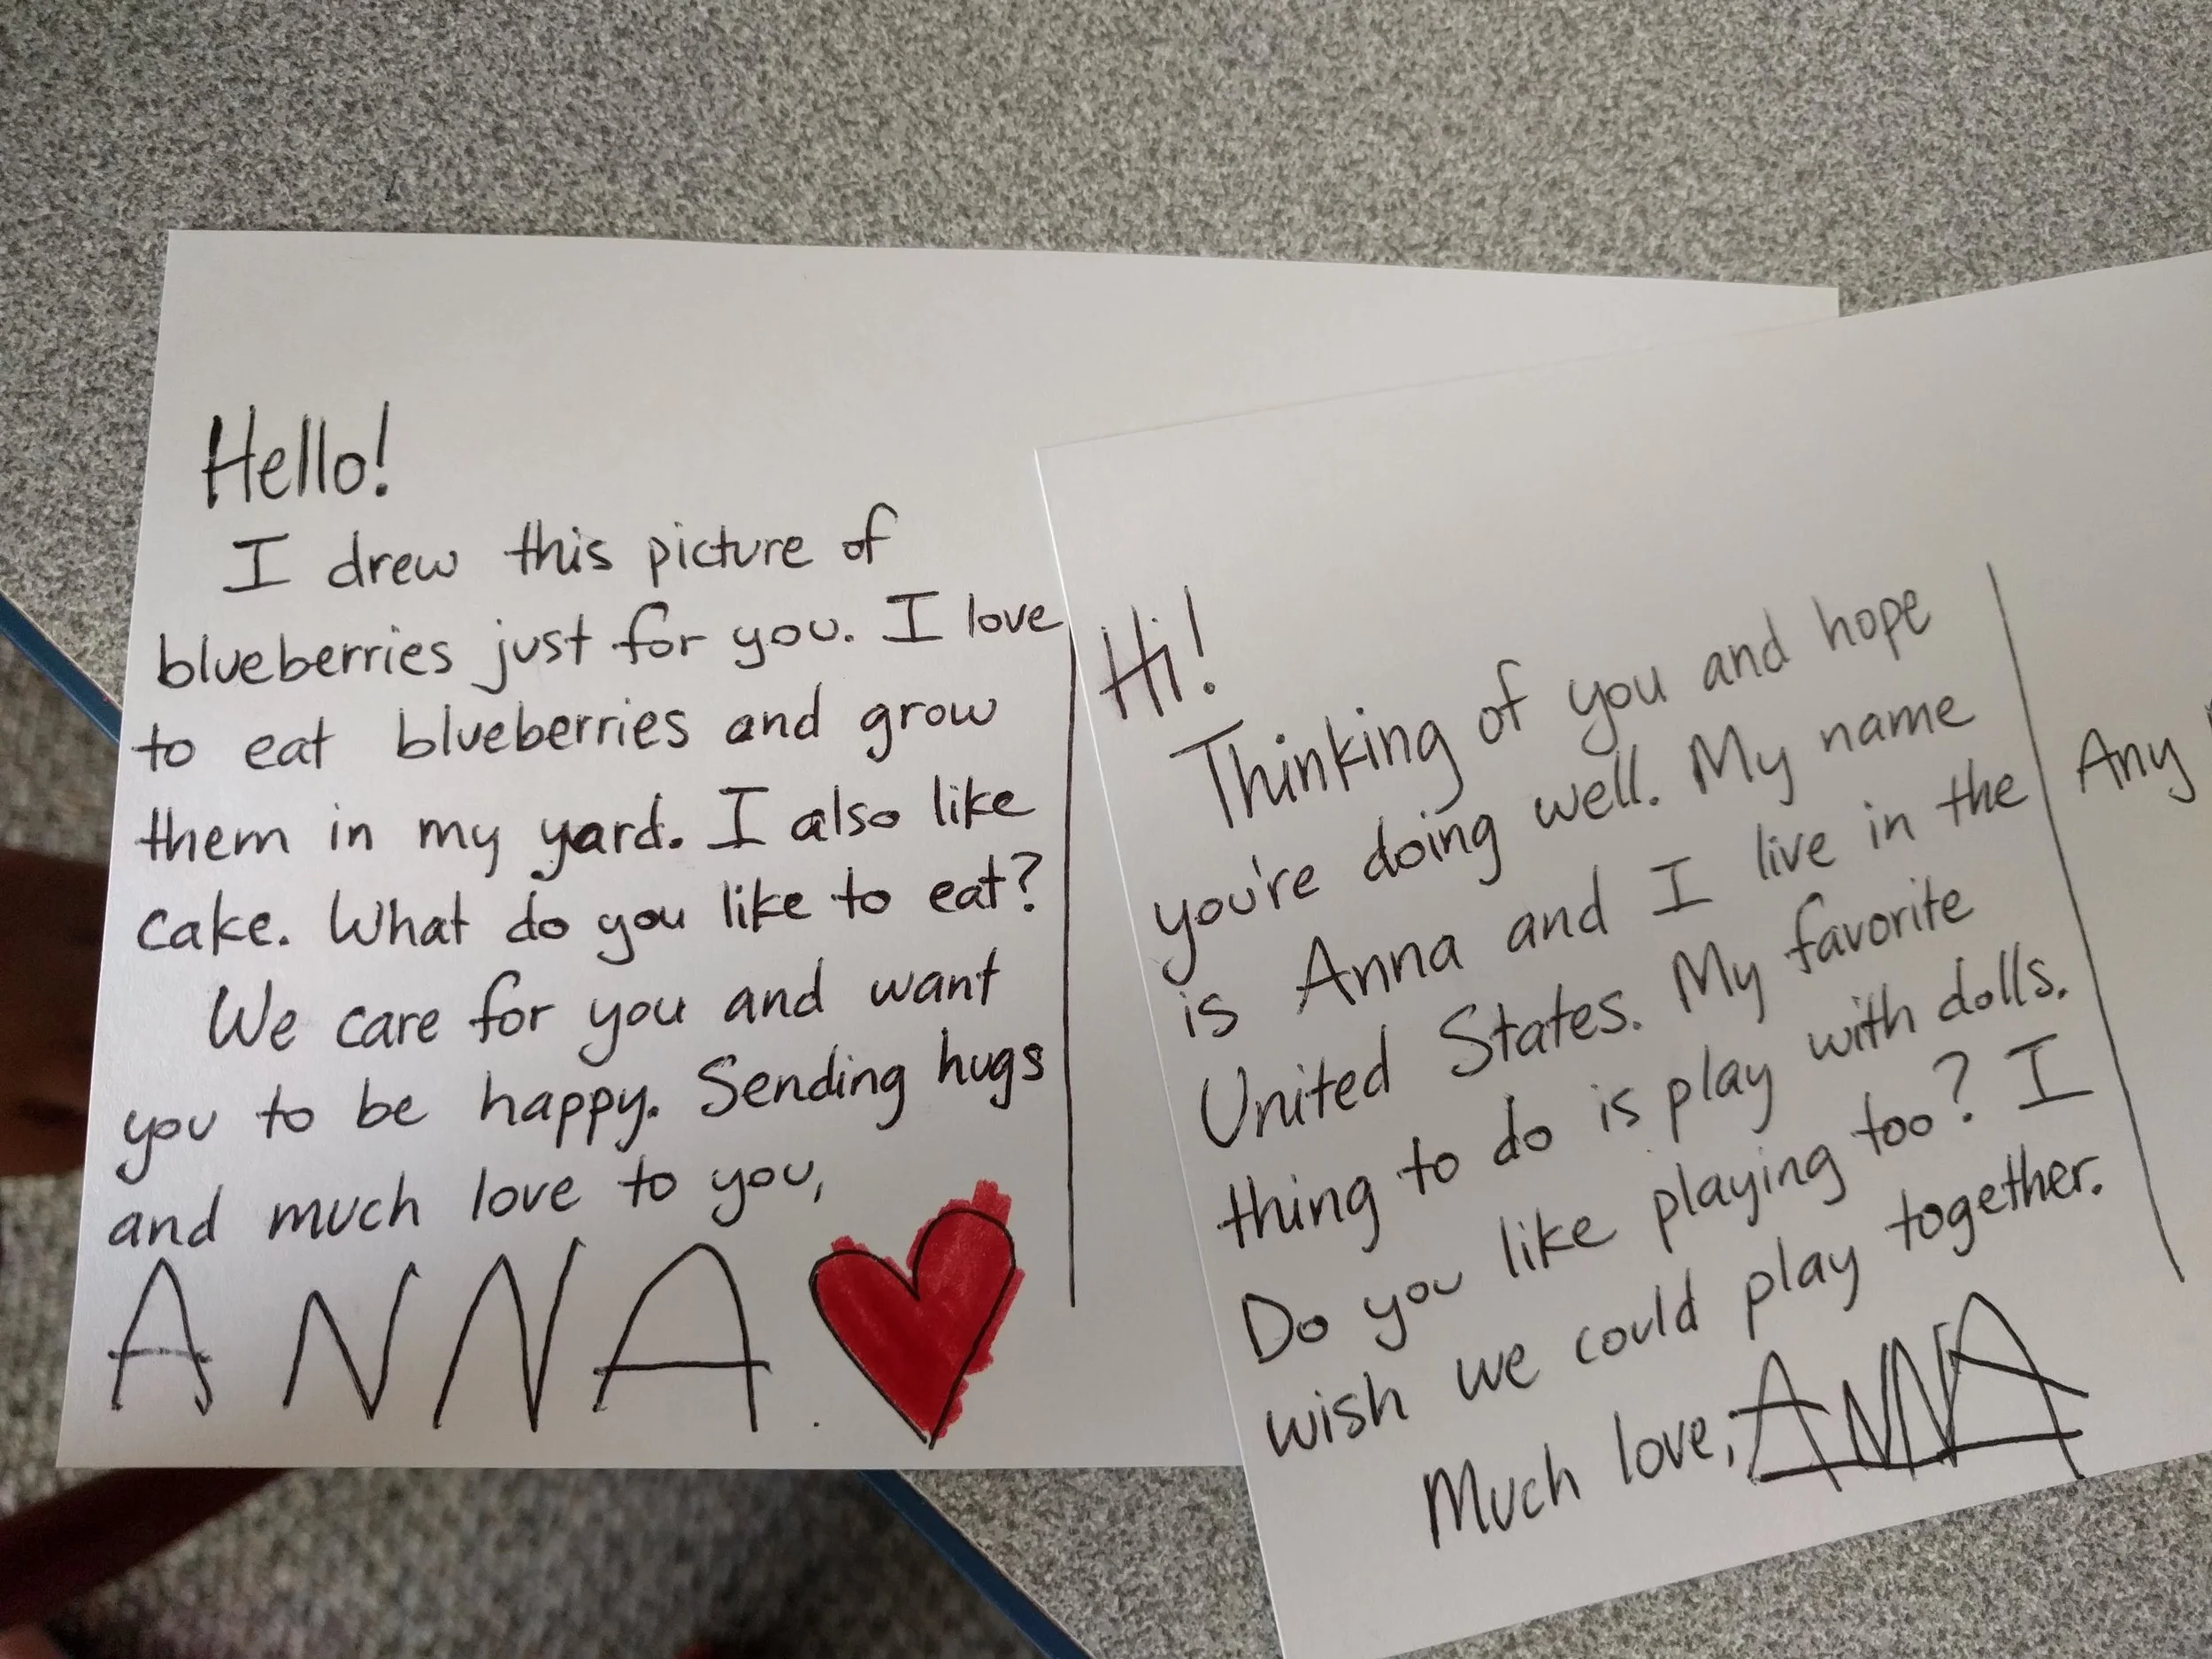 Hello!
I drew this picture of
blueberries just for you. I love
to eat blueberries and grow
them in my yard. I also like
cake. What do you like to eat?
We care for you and want
you to be happy. Sending hugs
and much love to you,
ANNA.
Hi!
Thinking of you and hope
you're doing well. My name
is Anna and I live in the
United States. My favorite
thing to do is play with dolls.
Do you like playing too? I
wish we could play together.
Much love, ANNA
Any